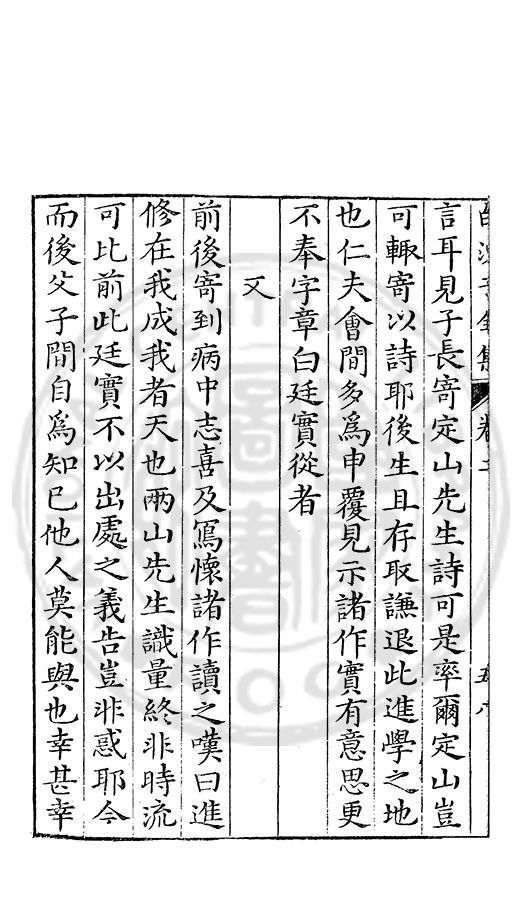 言耳見子長寄定山先生詩可是率爾定山豈
可輙寄以詩耶後生且存取謙退此進學之地
也仁夫會間多為申覆見示諸作實有意思更
不奉字章白廷實從者
又
前後寄到病中志喜及寫懷諸作讀之嘆曰進
修在我成我者天也兩山先生識量終非時流
可比前此廷實不以出處之義告豈非惑耶今
而後父子間自為知已他人莫能與也幸甚幸